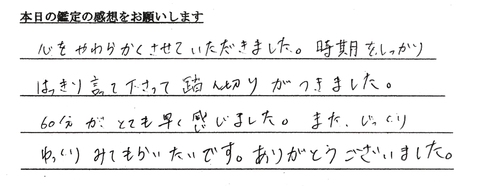 本日の鑑定の感想をお願いします
心をやわらかくさせていただきました。時期をしっかり
はっきり言って下さって踏ん切りがつきました。
60分がとても早く感じました。また、じっくり
ゆっくりみてもらいたいです。ありがとうございました。